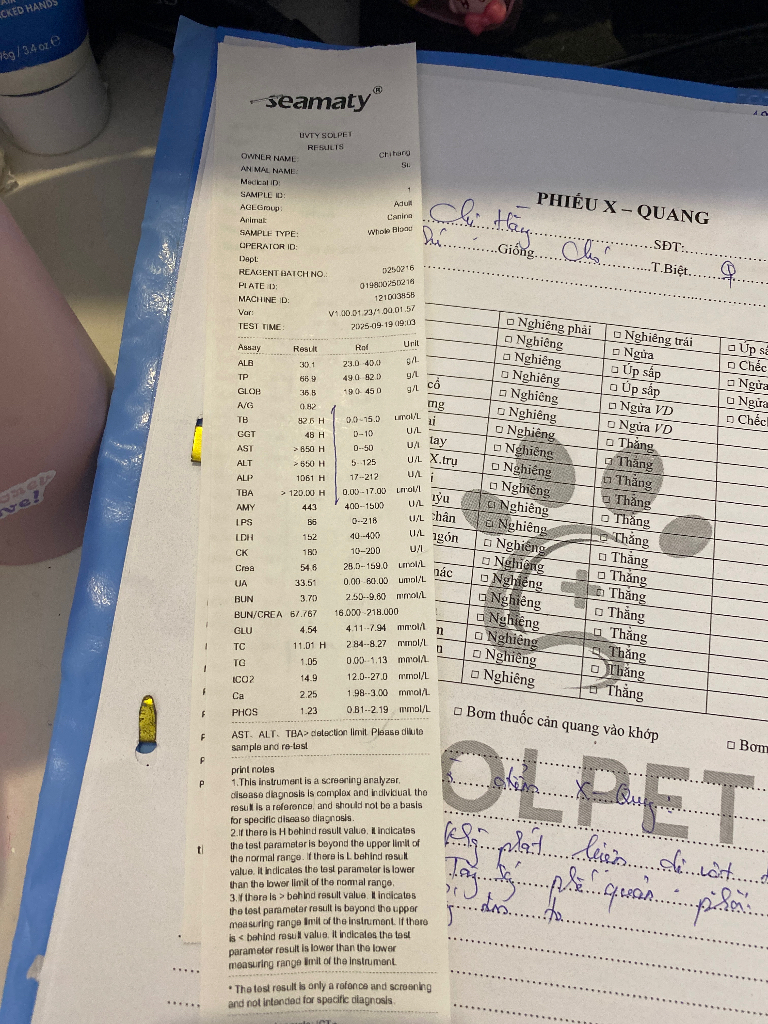 CKED HANDS
96g / 3.4 oz e
seamaty®
BVTY SOLPET
RESULTS
OWNER NAME: Chi hang
ANIMAL NAME: Su
Medical ID:
SAMPLE ID: 1
AGEGroup: Adult
Animal: Canine
SAMPLE TYPE: Whole Blood
OPERATOR ID:
Dept:
REAGENT BATCH NO.: 0250216
PLATE ID: 019800250216
MACHINE ID: 121003856
Ver: V1.00.01.23/1.00.01.57
TEST TIME: 2025-09-19 09:03
Assay Result Ref Unit
ALB 30.1 23.0--40.0 g/L
TP 66.9 49.0--82.0 g/L
GLOB 36.8 19.0--45.0 g/L
A/G 0.82
TB 82.6 H 0.0--15.0 umol/L
GGT 48 H 0--10 U/L
AST >650 H 0--50 U/L
ALT >650 H 5--125 U/L
ALP 1061 H 17--212 U/L
TBA >120.00 H 0.00--17.00 umol/L
AMY 443 400--1500 U/L
LPS 86 0--216 U/L
LDH 152 40--400 U/L
CK 180 10--200 U/l
Crea 54.6 28.0--159.0 umol/L
UA 33.51 0.00--60.00 umol/L
BUN 3.70 2.50--9.60 mmol/L
BUN/CREA 67.767 16.000--218.000
GLU 4.54 4.11--7.94 mmol/L
TC 11.01 H 2.84--8.27 mmol/L
TG 1.05 0.00--1.13 mmol/L
tCO2 14.9 12.0--27.0 mmol/L
Ca 2.25 1.98--3.00 mmol/L
PHOS 1.23 0.81--2.19 mmol/L
AST、ALT、TBA> detection limit. Please dilute
sample and re-test
print notes
1.This instrument is a screening analyzer,
disease diagnosis is complex and individual, the
result is a reference, and should not be a basis
for specific disease diagnosis.
2.If there is H behind result value, it indicates
the test parameter is beyond the upper limit of
the normal range. If there is L behind result
value, it indicates the test parameter is lower
than the lower limit of the normal range.
3.If there is > behind result value, it indicates
the test parameter result is beyond the upper
measuring range limit of the instrument. If there
is < behind result value, it indicates the test
parameter result is lower than the lower
measuring range limit of the instrument.
* The test result is only a refence and screening
and not intended for specific diagnosis.
PHIẾU X – QUANG
Chị Hằng SĐT:
Giống Chó T.Biệt ♀
□ Nghiêng phải □ Nghiêng trái □ Úp
□ Nghiêng □ Ngửa
□ Nghiêng □ Úp sấp □ Ngửa
□ Nghiêng □ Úp sấp
□ Nghiêng □ Ngửa VD
□ Nghiêng □ Ngửa VD
□ Nghiêng □ Thẳng
□ Nghiêng □ Thẳng
□ Nghiêng □ Thẳng
□ Nghiêng □ Thẳng
□ Nghiêng □ Thẳng
□ Nghiêng □ Thẳng
□ Nghiêng □ Thẳng
□ Nghiêng □ Thẳng
□ Nghiêng □ Thẳng
□ Nghiêng □ Thẳng
□ Nghiêng □ Thẳng
□ Nghiêng □ Thẳng
□ Nghiêng □ Thẳng
□ Bơm thuốc cản quang vào khớp □ Bơm
OLPET
điểm X-Quang
phát hiện dị vật
phế quản phổi